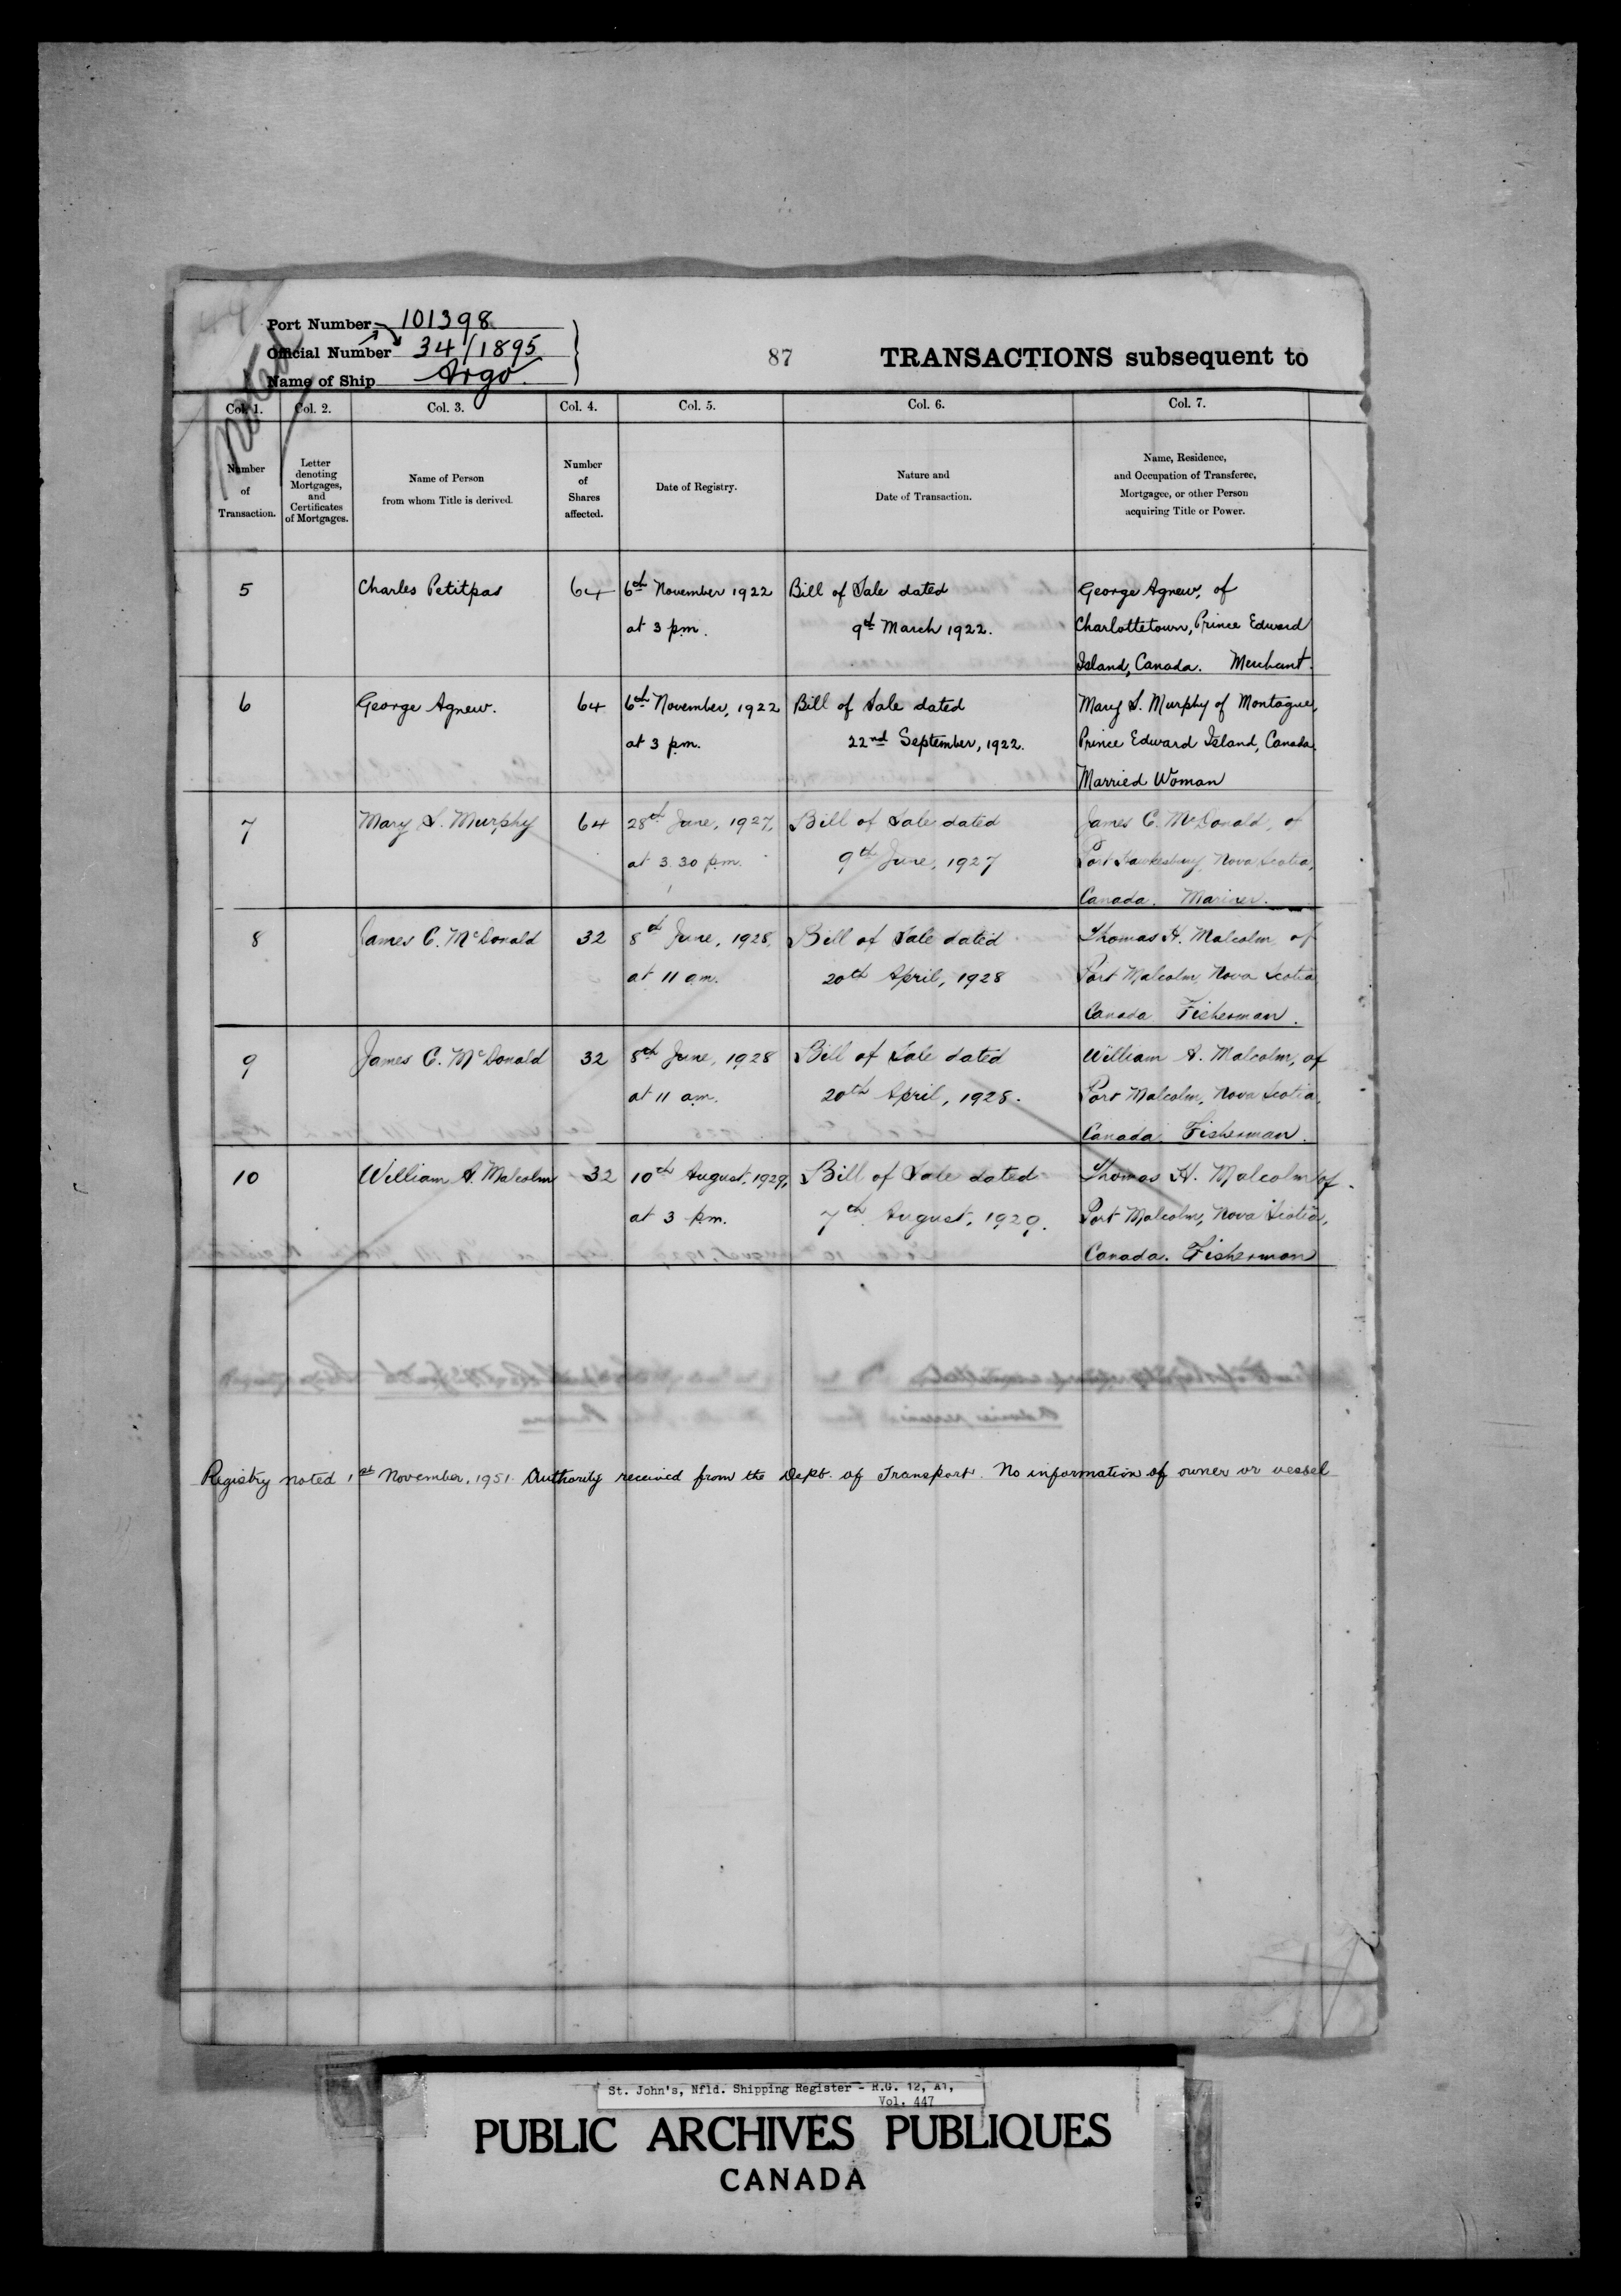 Port Number 101398
Official Number 34/1895
Name of Ship Argo.
87 TRANSACTIONS subsequent to
Col. 1. Col. 2. Col. 3. Col. 4. Col. 5. Col. 6. Col. 7.
Number
of
Transaction.
Letter
denoting
Mortgages,
and
Certificates
of Mortgages.
Name of Person
from whom Title is derived.
Number
of
Shares
affected.
Date of Registry.
Nature and
Date of Transaction.
Name, Residence,
and Occupation of Transferee,
Mortgagee, or other Person
acquiring Title or Power.
5 Charles Petitpas 64 6th November 1922 Bill of Sale dated George Agnew, of
at 3 p.m. 9th March 1922. Charlottetown, Prince Edward
Island, Canada. Merchant.
6 George Agnew. 64 6th November, 1922 Bill of Sale dated Mary S. Murphy of Montague,
at 3 p.m. 22nd September, 1922. Prince Edward Island, Canada.
Married Woman
7 Mary S. Murphy 64 28th June, 1927, Bill of Sale dated James C. McDonald, of
at 3.30 p.m. 9th June, 1927 Port Hawkesbury, Nova Scotia,
Canada. Mariner.
8 James C. McDonald 32 8th June, 1928, Bill of Sale dated Thomas H. Malcolm, of
at 11 a.m. 20th April, 1928 Port Malcolm, Nova Scotia
Canada Fisherman.
9 James C. McDonald 32 8th June, 1928 Bill of Sale dated William A. Malcolm, of
at 11 a.m. 20th April, 1928. Port Malcolm, Nova Scotia,
Canada. Fisherman.
10 William A. Malcolm 32 10th August, 1929, Bill of Sale dated Thomas H. Malcolm of
at 3 p.m. 7th August, 1929. Port Malcolm, Nova Scotia,
Canada. Fisherman
Registry noted 1st November, 1951. Authority received from the Dept. of Transport. No information of owner or vessel
St. John's, Nfld. Shipping Register - R.G. 12, A1,
Vol. 447
PUBLIC ARCHIVES PUBLIQUES
CANADA